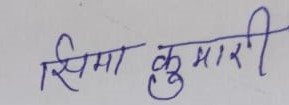 सिमा कुमारी